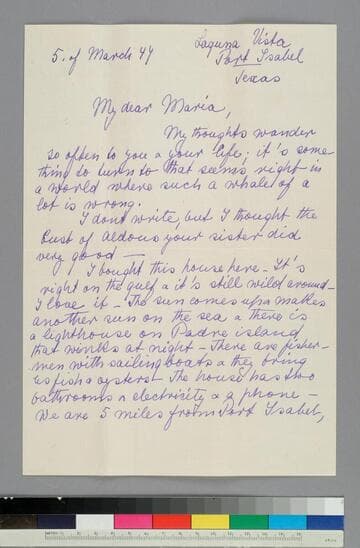 5. of March 49
Laguna Vista
Port Isabel
Texas
My dear Maria,
My thoughts wander
so often to you & your life; it's some
thing to turn to that seems right in
a world where such a whale of a
lot is wrong.
I dont write, but I thought the
bust of Aldous your sister did
very good —
I bought this house here – It's
right on the gulf & it's still wild around –
I love it – The sun comes up & makes
another sun on the sea & there is
a lighthouse on Padre island
that winks at night – There are fisher-
men with sailing boats & they bring
us fish & oysters – The house has two
bathrooms & electricity & a phone –
We are 5 miles from Port Isabel,